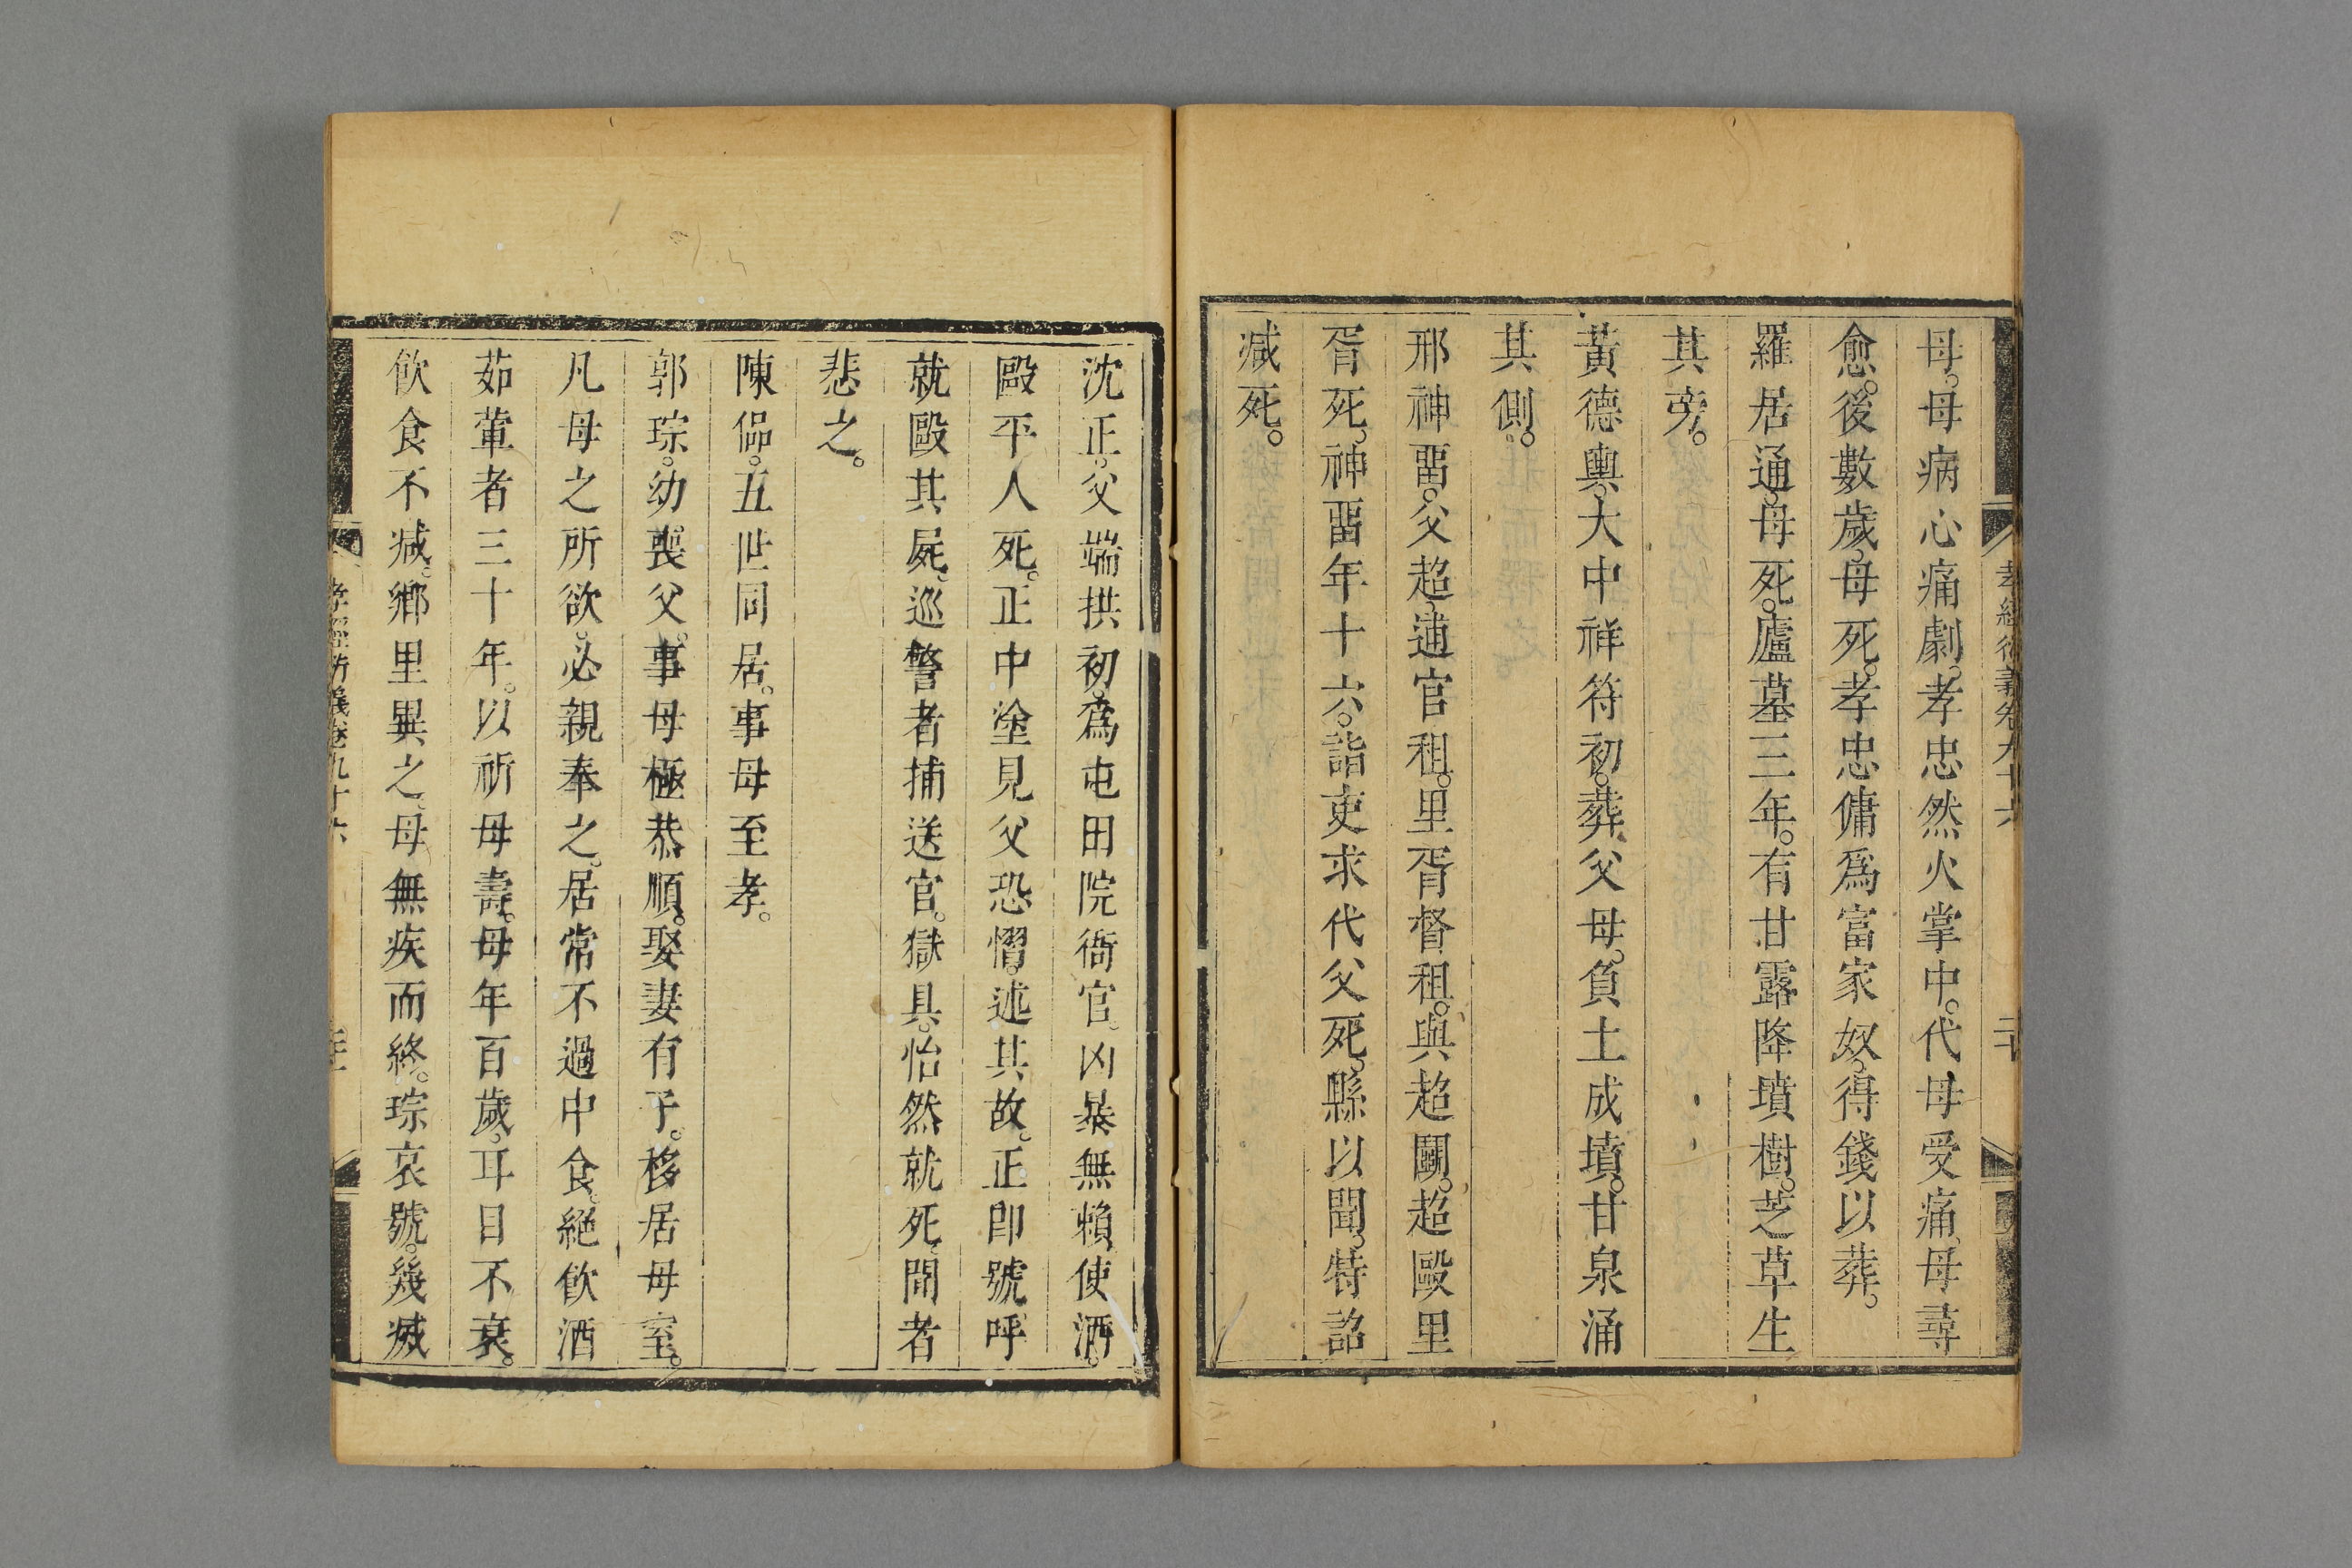 孝經衍義卷九十六
二十
母。母病心痛劇。孝忠然火掌中。代母受痛。母尋
愈。後數歲。母死。孝忠傭爲富家奴。得錢以葬。
羅居通。母死。廬墓三年。有甘露降墳樹。芝草生
其旁。
黃德輿。大中祥符初。葬父母。負土成墳。甘泉涌
其側。
邢神畱。父超。逋官租。里胥督租。與超鬬。超毆里
胥死。神畱年十六。詣吏求代父死。縣以聞。特詔
減死。
沈正。父端拱初。爲屯田院衙官。凶暴無賴。使酒。
毆平人死。正中塗見父恐慴。述其故。正即號呼
就毆其屍。巡警者捕送官。獄具。怡然就死。聞者
悲之。
陳侃。五世同居。事母至孝。
郭琮。幼喪父。事母極恭順。娶妻有子。移居母室。
凡母之所欲。必親奉之。居常不過中食。絕飲酒
茹葷者三十年。以祈母壽。母年百歲。耳目不衰。
飲食不減。鄉里異之。母無疾而終。琮哀號。幾滅
孝經衍義卷九十六